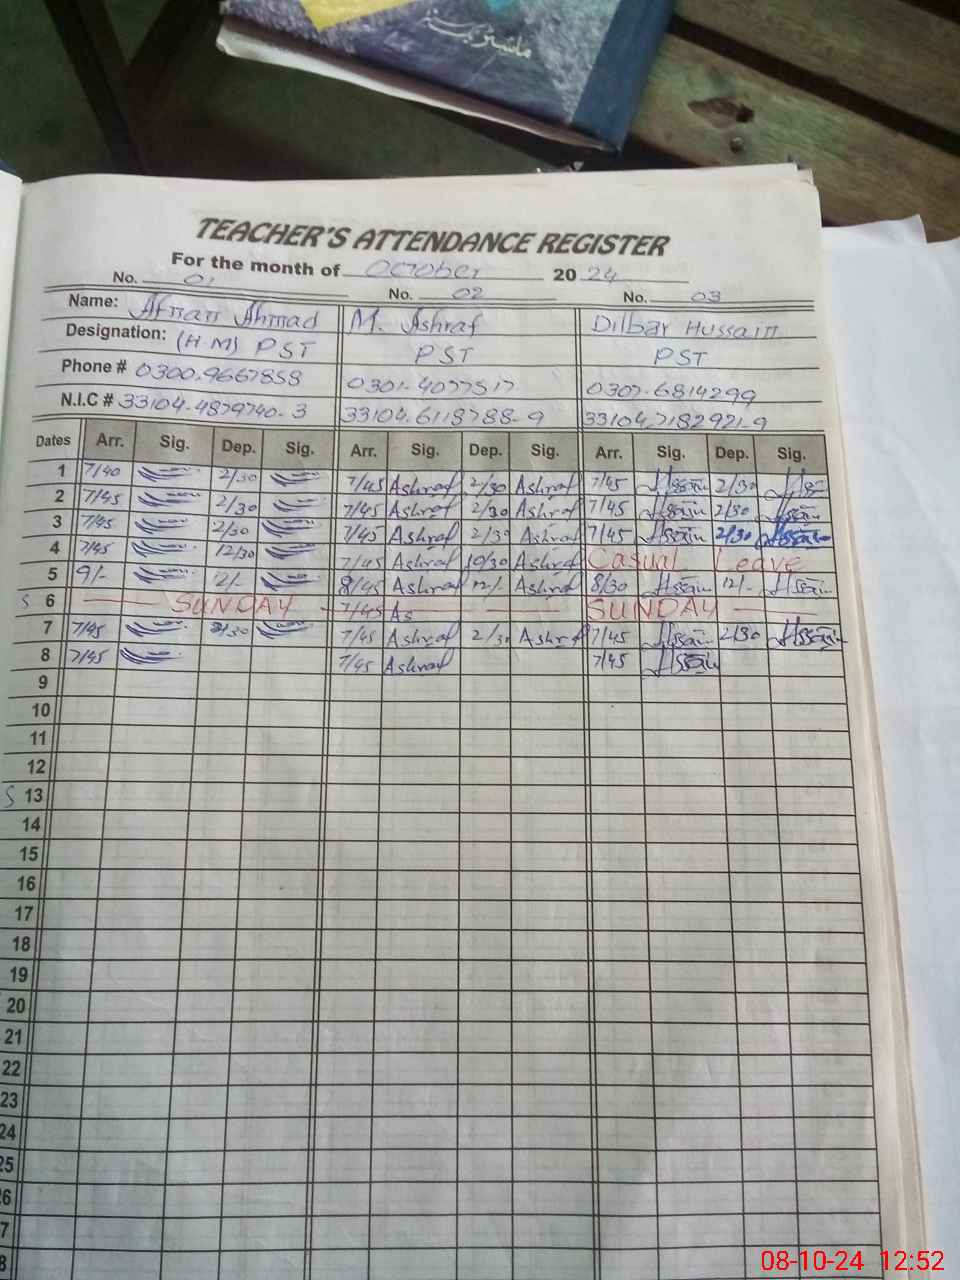 ماسٹر پیس
TEACHER'S ATTENDANCE REGISTER
For the month of October 2024
No. 01 No. 02 No. 03
Name: Afnan Ahmad M. Ashraf Dilbar Hussain
Designation: (H M) PST PST PST
Phone # 0300.9667858 0301-4077517 0307-6814299
N.I.C # 33104-4879740-3 33104.6118788-9 33104.7182921-9
Dates Arr. Sig. Dep. Sig. Arr. Sig. Dep. Sig. Arr. Sig. Dep. Sig.
1 7/40 2/30 7/45 Ashraf 2/30 Ashraf 7/45 2/30
2 7/45 2/30 7/45 Ashraf 2/30 Ashraf 7/45 2/30
3 7/45 2/30 7/45 Ashraf 2/30 Ashraf 7/45 2/30
4 7/45 12/30 7/45 Ashraf 10/30 Ashraf Casual Leave
5 9/- 12/- 8/45 Ashraf 12/- Ashraf 8/30 12/-
S 6 SUNDAY 7/45 As SUNDAY
7 7/45 2/30 7/45 Ashraf 2/30 Ashraf 7/45 2/30
8 7/45 7/45 Ashraf 7/45
9
10
11
12
S 13
14
15
16
17
18
19
20
21
22
23
24
25
26
7
8
08-10-24 12:52